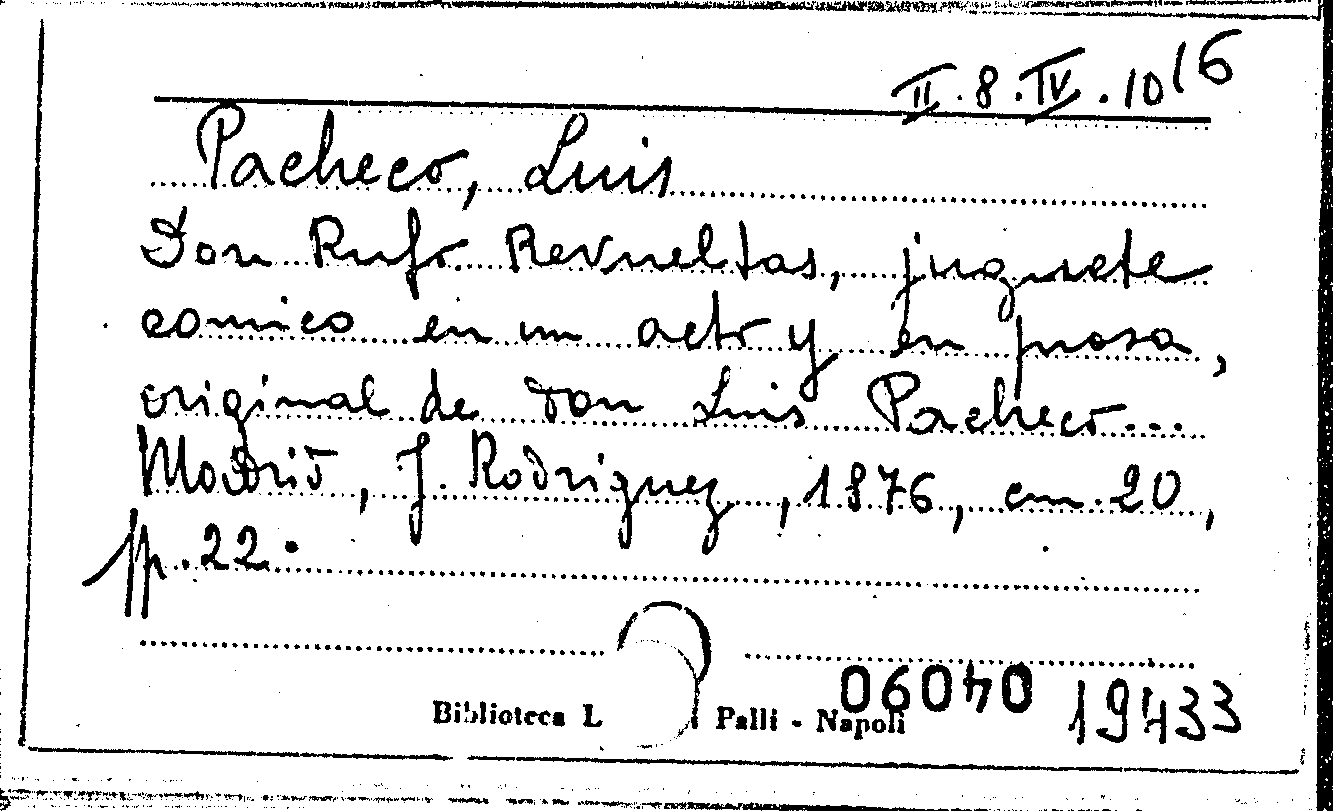 II.8.IV.10 16
Pacheco, Luis
Don Rufo Revueltas, juguete
comico en un acto y en prosa,
original de don Luis Pacheco...
Madrid, J. Rodriguez, 1876, cm. 20,
pp. 22.
Biblioteca L Palli - Napoli
04090 19433